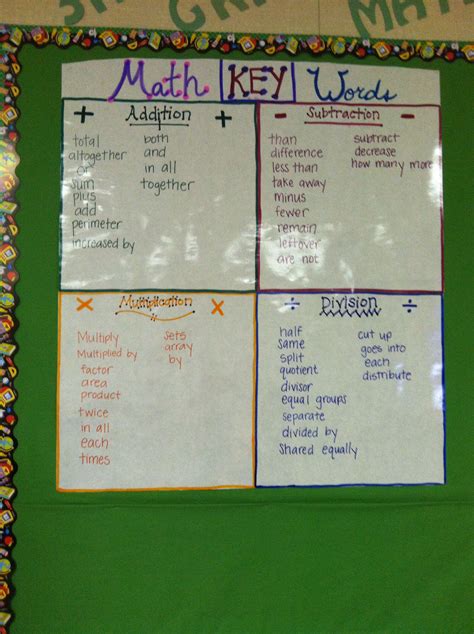 MATH
Math KEY Words
+ Addition +
total
altogether
or
sum
plus
add
perimeter
increased by
both
and
in all
together
- Subtraction -
than
difference
less than
take away
minus
fewer
remain
leftover
are not
subtract
decrease
how many more
× Multiplication ×
Multiply
Multiplied by
factor
area
product
twice
in all
each
times
sets
array
by
÷ Division ÷
half
same
split
quotient
divisor
equal groups
separate
divided by
Shared equally
cut up
goes into
each
distribute